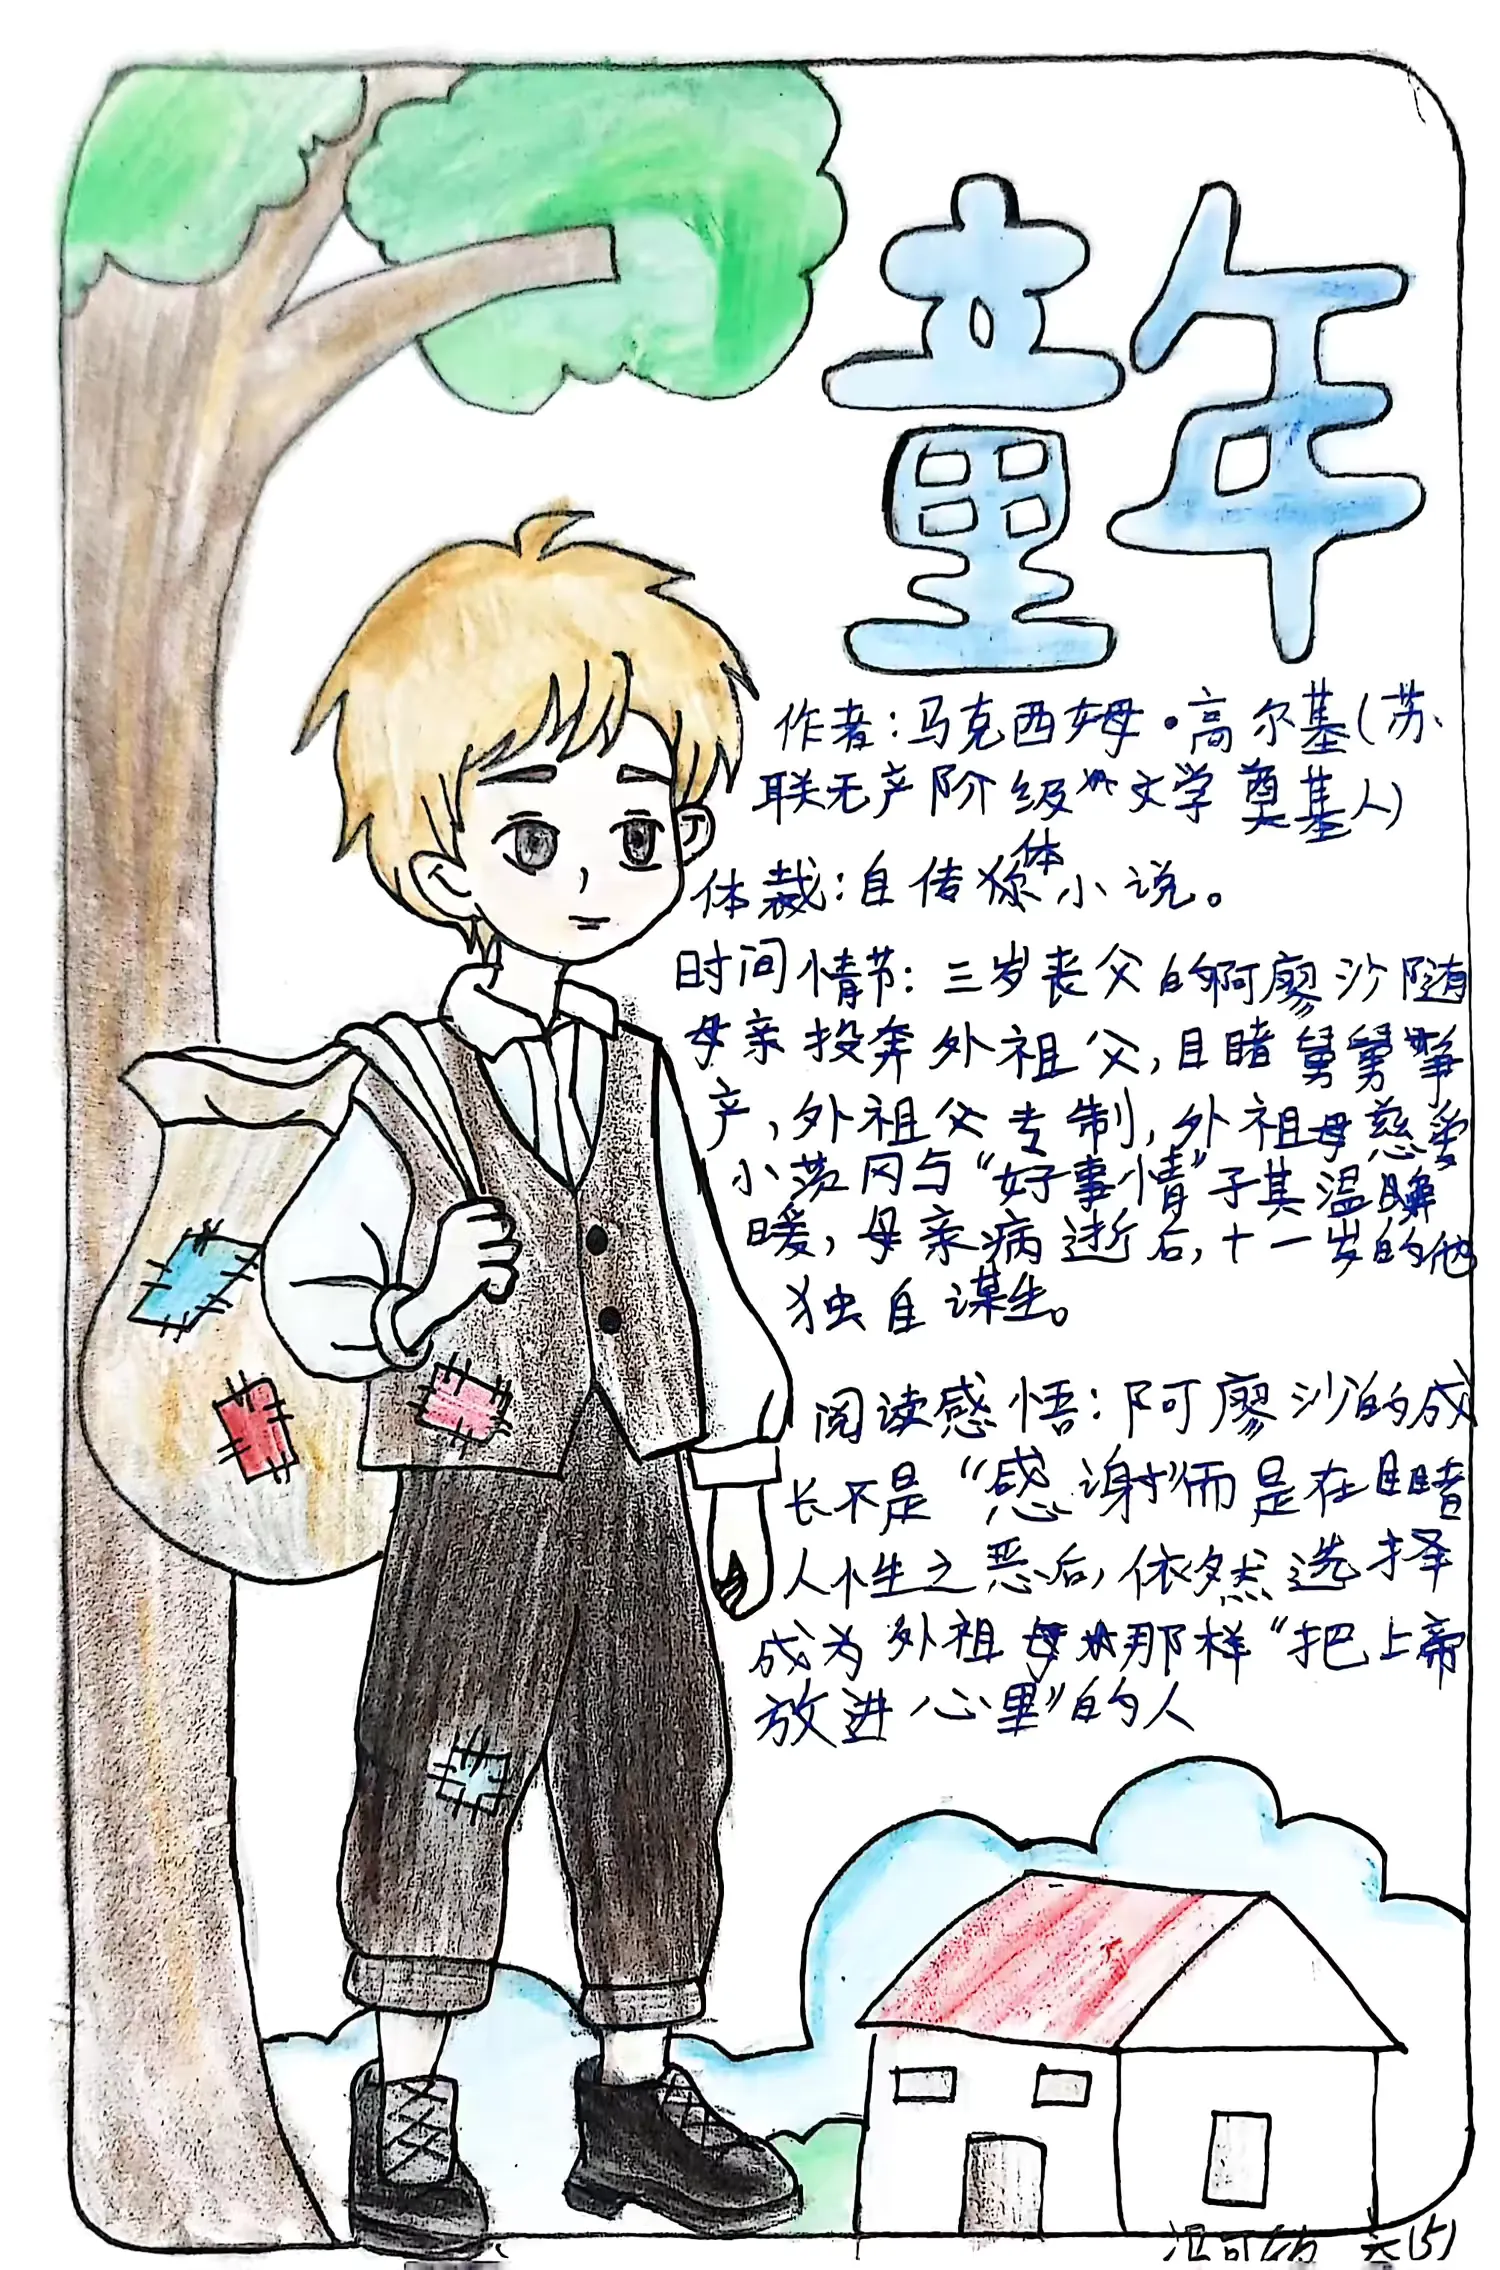 童年
作者：马克西姆·高尔基（苏
联无产阶级文学奠基人）
体裁：自传体小说。
时间情节：三岁丧父的阿廖沙随
母亲投奔外祖父，目睹舅舅争
产，外祖父专制，外祖母慈爱
小茨冈与“好事情”予其温
暖，母亲病逝后，十一岁的他
独自谋生。
阅读感悟：阿廖沙的成
长不是“感谢”而是在目睹
人性之恶后，依然选择
成为外祖母那样“把上帝
放进心里”的人
六(5)